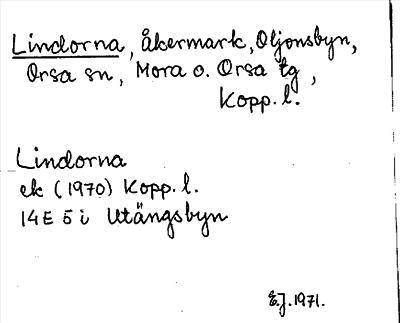 Lindorna, Åkermark, Oljonsbyn,
Orsa sn, Mora o. Orsa tg,
Kopp. l.
Lindorna
ek (1970) Kopp. l.
14E 5i Utängsbyn
E.J. 1971.